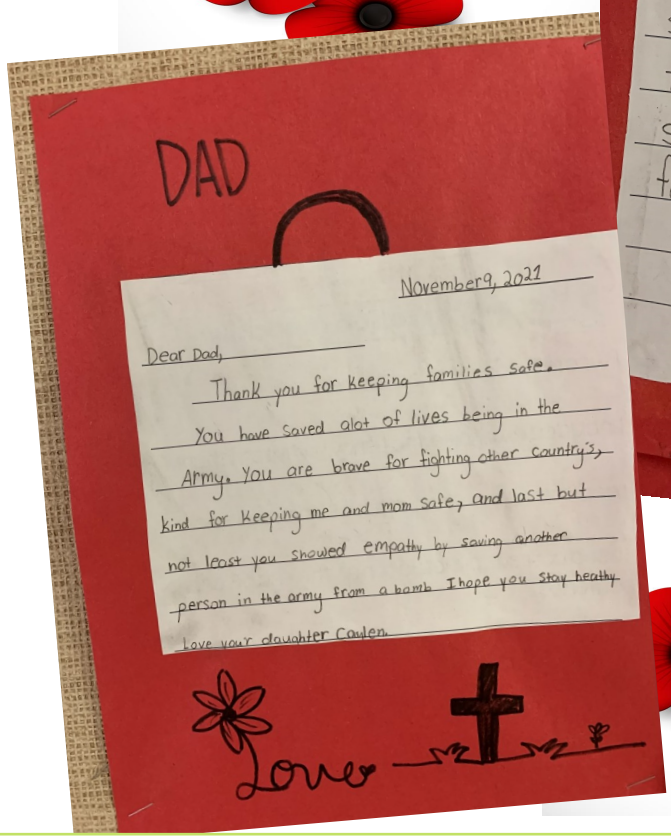 DAD
November 9, 2021
Dear Dad,
Thank you for keeping families safe.
You have saved alot of lives being in the
Army. You are brave for fighting other country's,
kind for keeping me and mom safe, and last but
not least you showed empathy by saving another
person in the army from a bomb I hope you stay heathy
Love your daughter Caylen.
Love